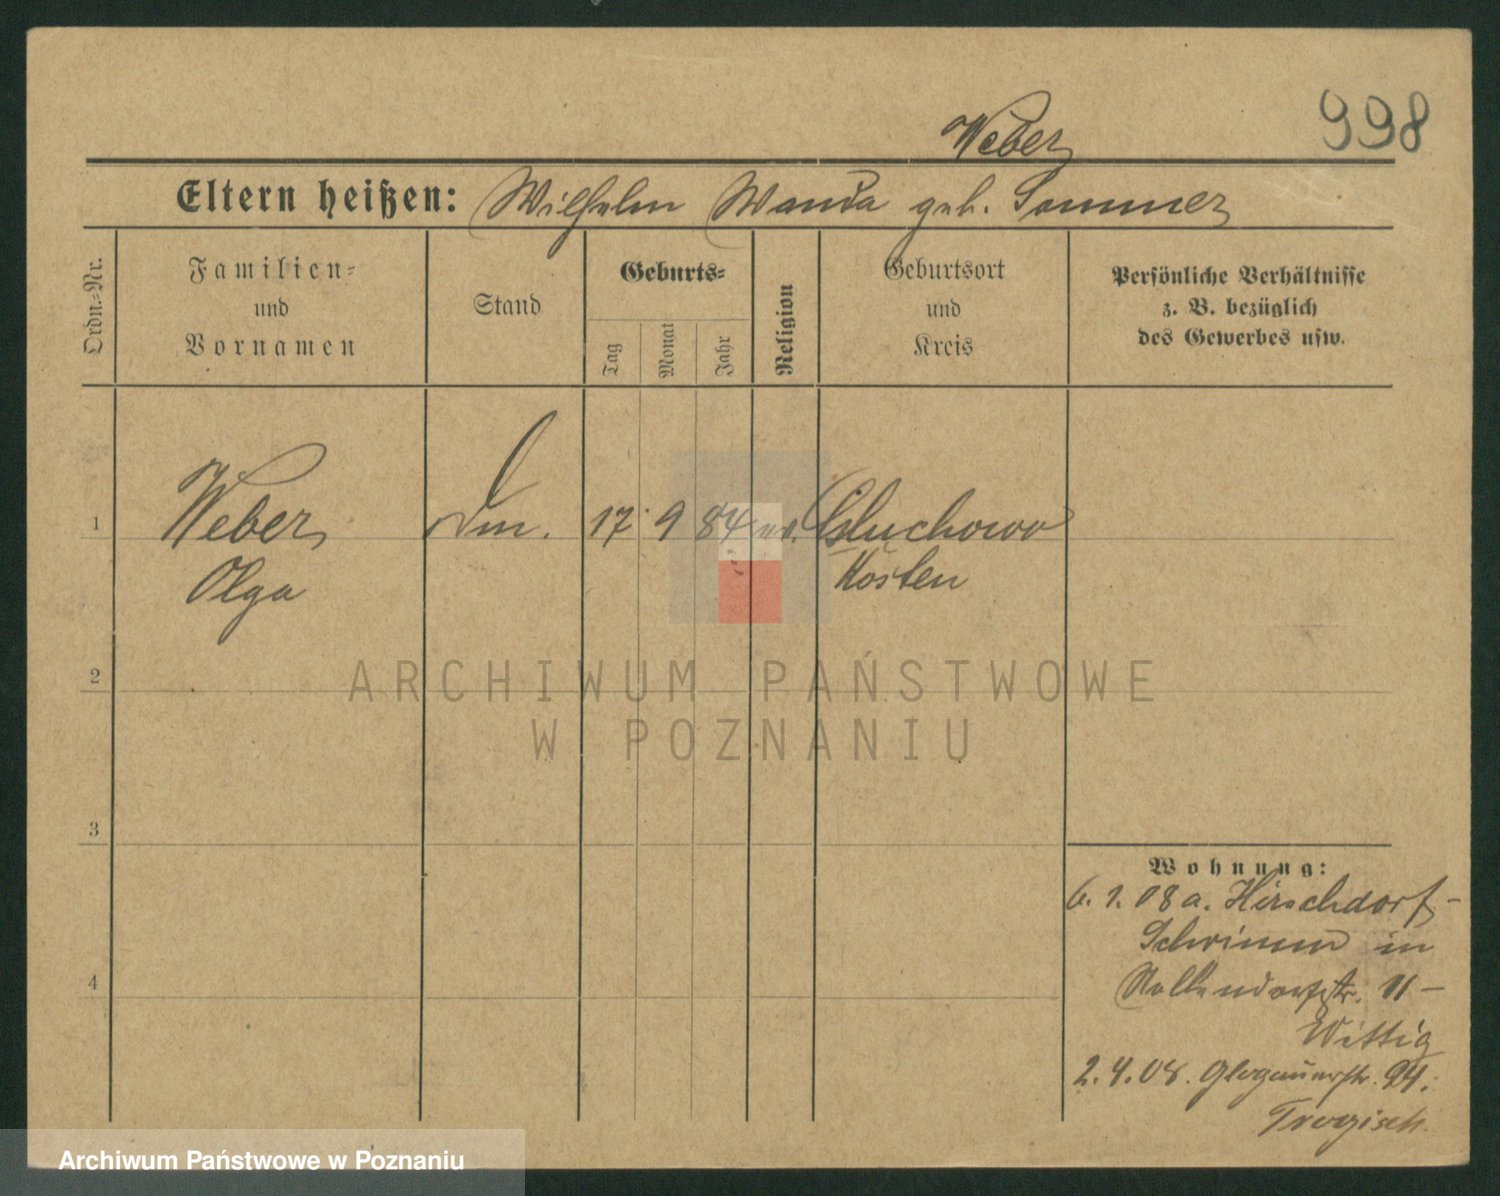 998
Weber
Eltern heißen: Wilhelm Wanda geb. Sommer
Ordn.-Nr.
Familien-
und
Vornamen
Stand
Geburts-
Tag
Monat
Jahr
Religion
Geburtsort
und
Kreis
Persönliche Verhältnisse
z. B. bezüglich
des Gewerbes usw.
1
Weber
Olga
17 9 84 ev.
Kosten
2
3
4
ARCHIWUM PAŃSTWOWE
W POZNANIU
Wohnung:
6. 1. 08 a. Hirschdorf-
in
Nollendorfstr. 11 -
Wittig
2. 4. 08. Glogauerstr. 94.
Archiwum Państwowe w Poznaniu